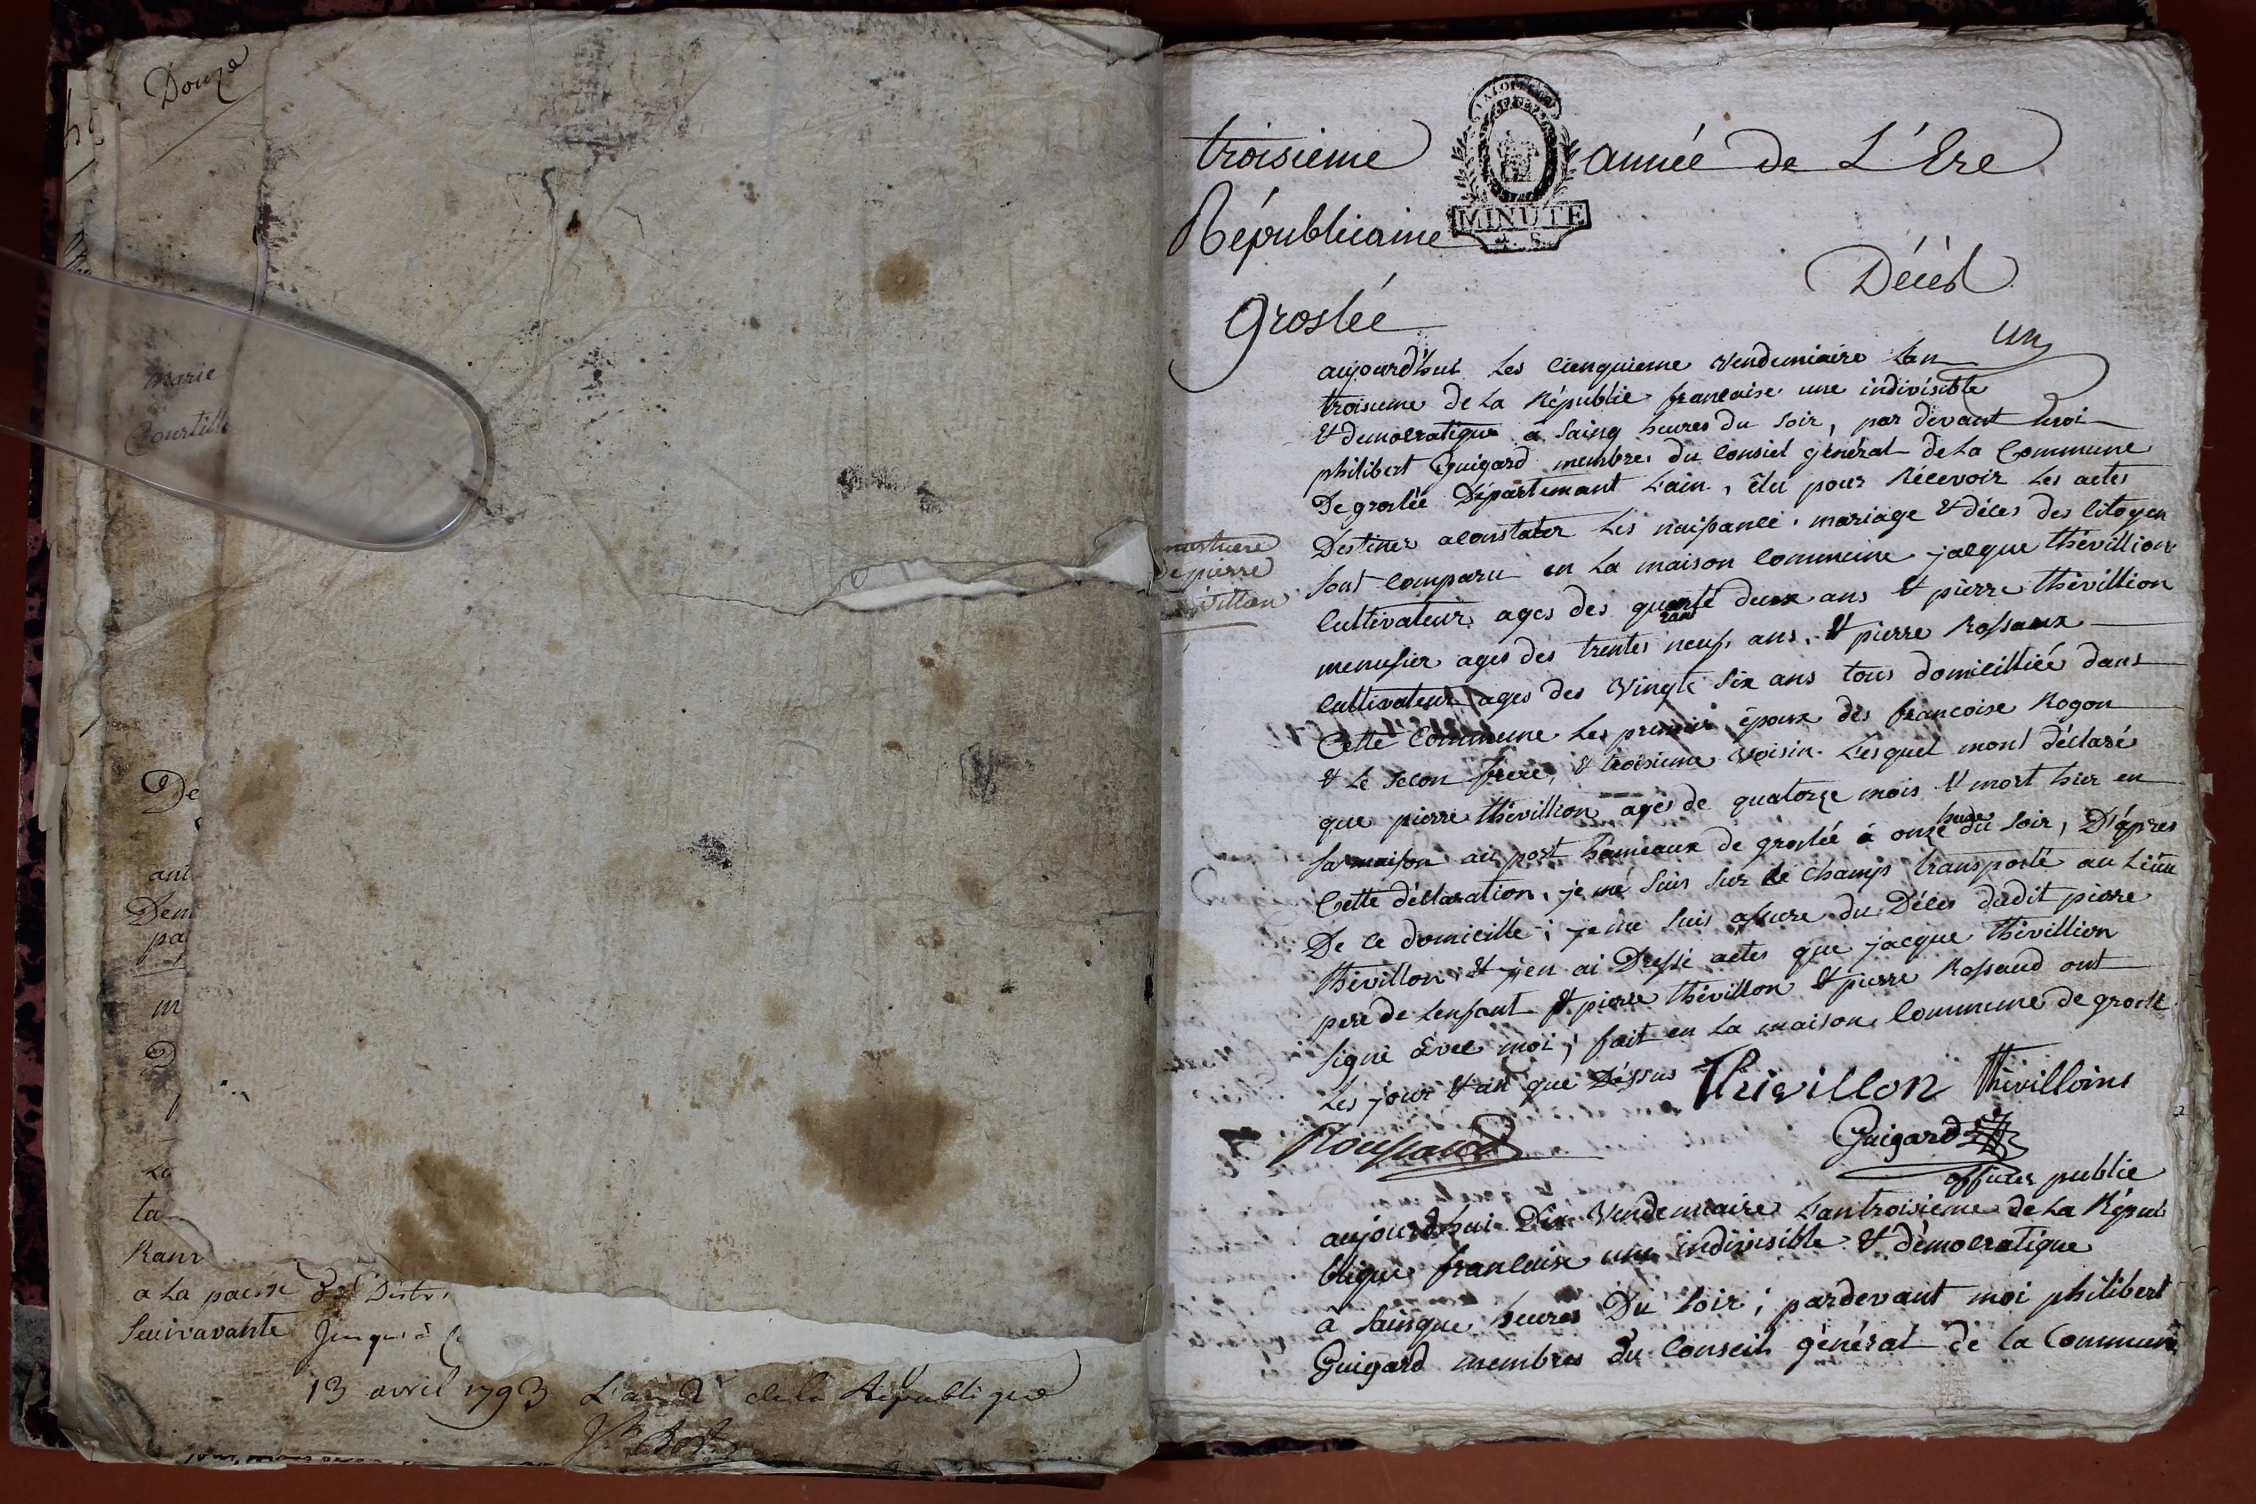 Douze
marie
Courtill
De
ani
Dem
pa
m
D
La
ta
Ram
a La paesse du Distr
Seuivavante Jusqu'à
13 avril 1793 L'an 2 de la République
troisieme année de L'Ere
Républicaine
MINUTE
4. S.
Décès
Groslée
un
aujourd'hui Les Cienquieme Vendemiaire Lan
troisieme de La Républic francaise une indivisible
Et democratique a Sainq heures du Soir, par devant moi
philibert Guigard membres du Consiel général de La Commune
De groslée Département L'ain, êlü pour Récevoir Les actes
Destiner aconstater Les naissance, mariage & déces des Citoyen
Sont Comparu en La maison Commeine jacque thévillion
Cultivateur ages des quarante deux ans & pierre thévillion
menusier ages des trentes neufs ans, & pierre Rossaux
Cultivateur ages des Vingts Six ans tous domicilliée dans
Cette Commeune Les premier époux des francoise Rogon
& Le Secon frere, & troisieme Voisin. Lesquel mont déclaré
que pierre thévillion agés de quatorze mois & mort hier en
Sa maison au port hameaux de groslée à onze heures du Soir, D'apres
Cette déclaration, je me Suis Sur le Champs transporté au Lieüe
De Ce domicille; je me Suis assure du Déces dudit pierre
thévillon, & jen ai Dressé actes que jacque thévillion
pere de Lenfant & pierre thévillon & pierre Rossaud ont
Signé avec moi; fait en La maison Commeune de groslé
Les jour & an que Déssus Thévillon Thévilloins
Roussaud
Guigard
officier public
mortuere
de pierre
thévillon
aujourdhui Dix Vendemiaire Lantroisieme de La Répeu
blique francaise une indivisible & démocratique
à Sainque heures Du Soir; pardevant moi philibert
Guigard membres du Conseils général de la Commune